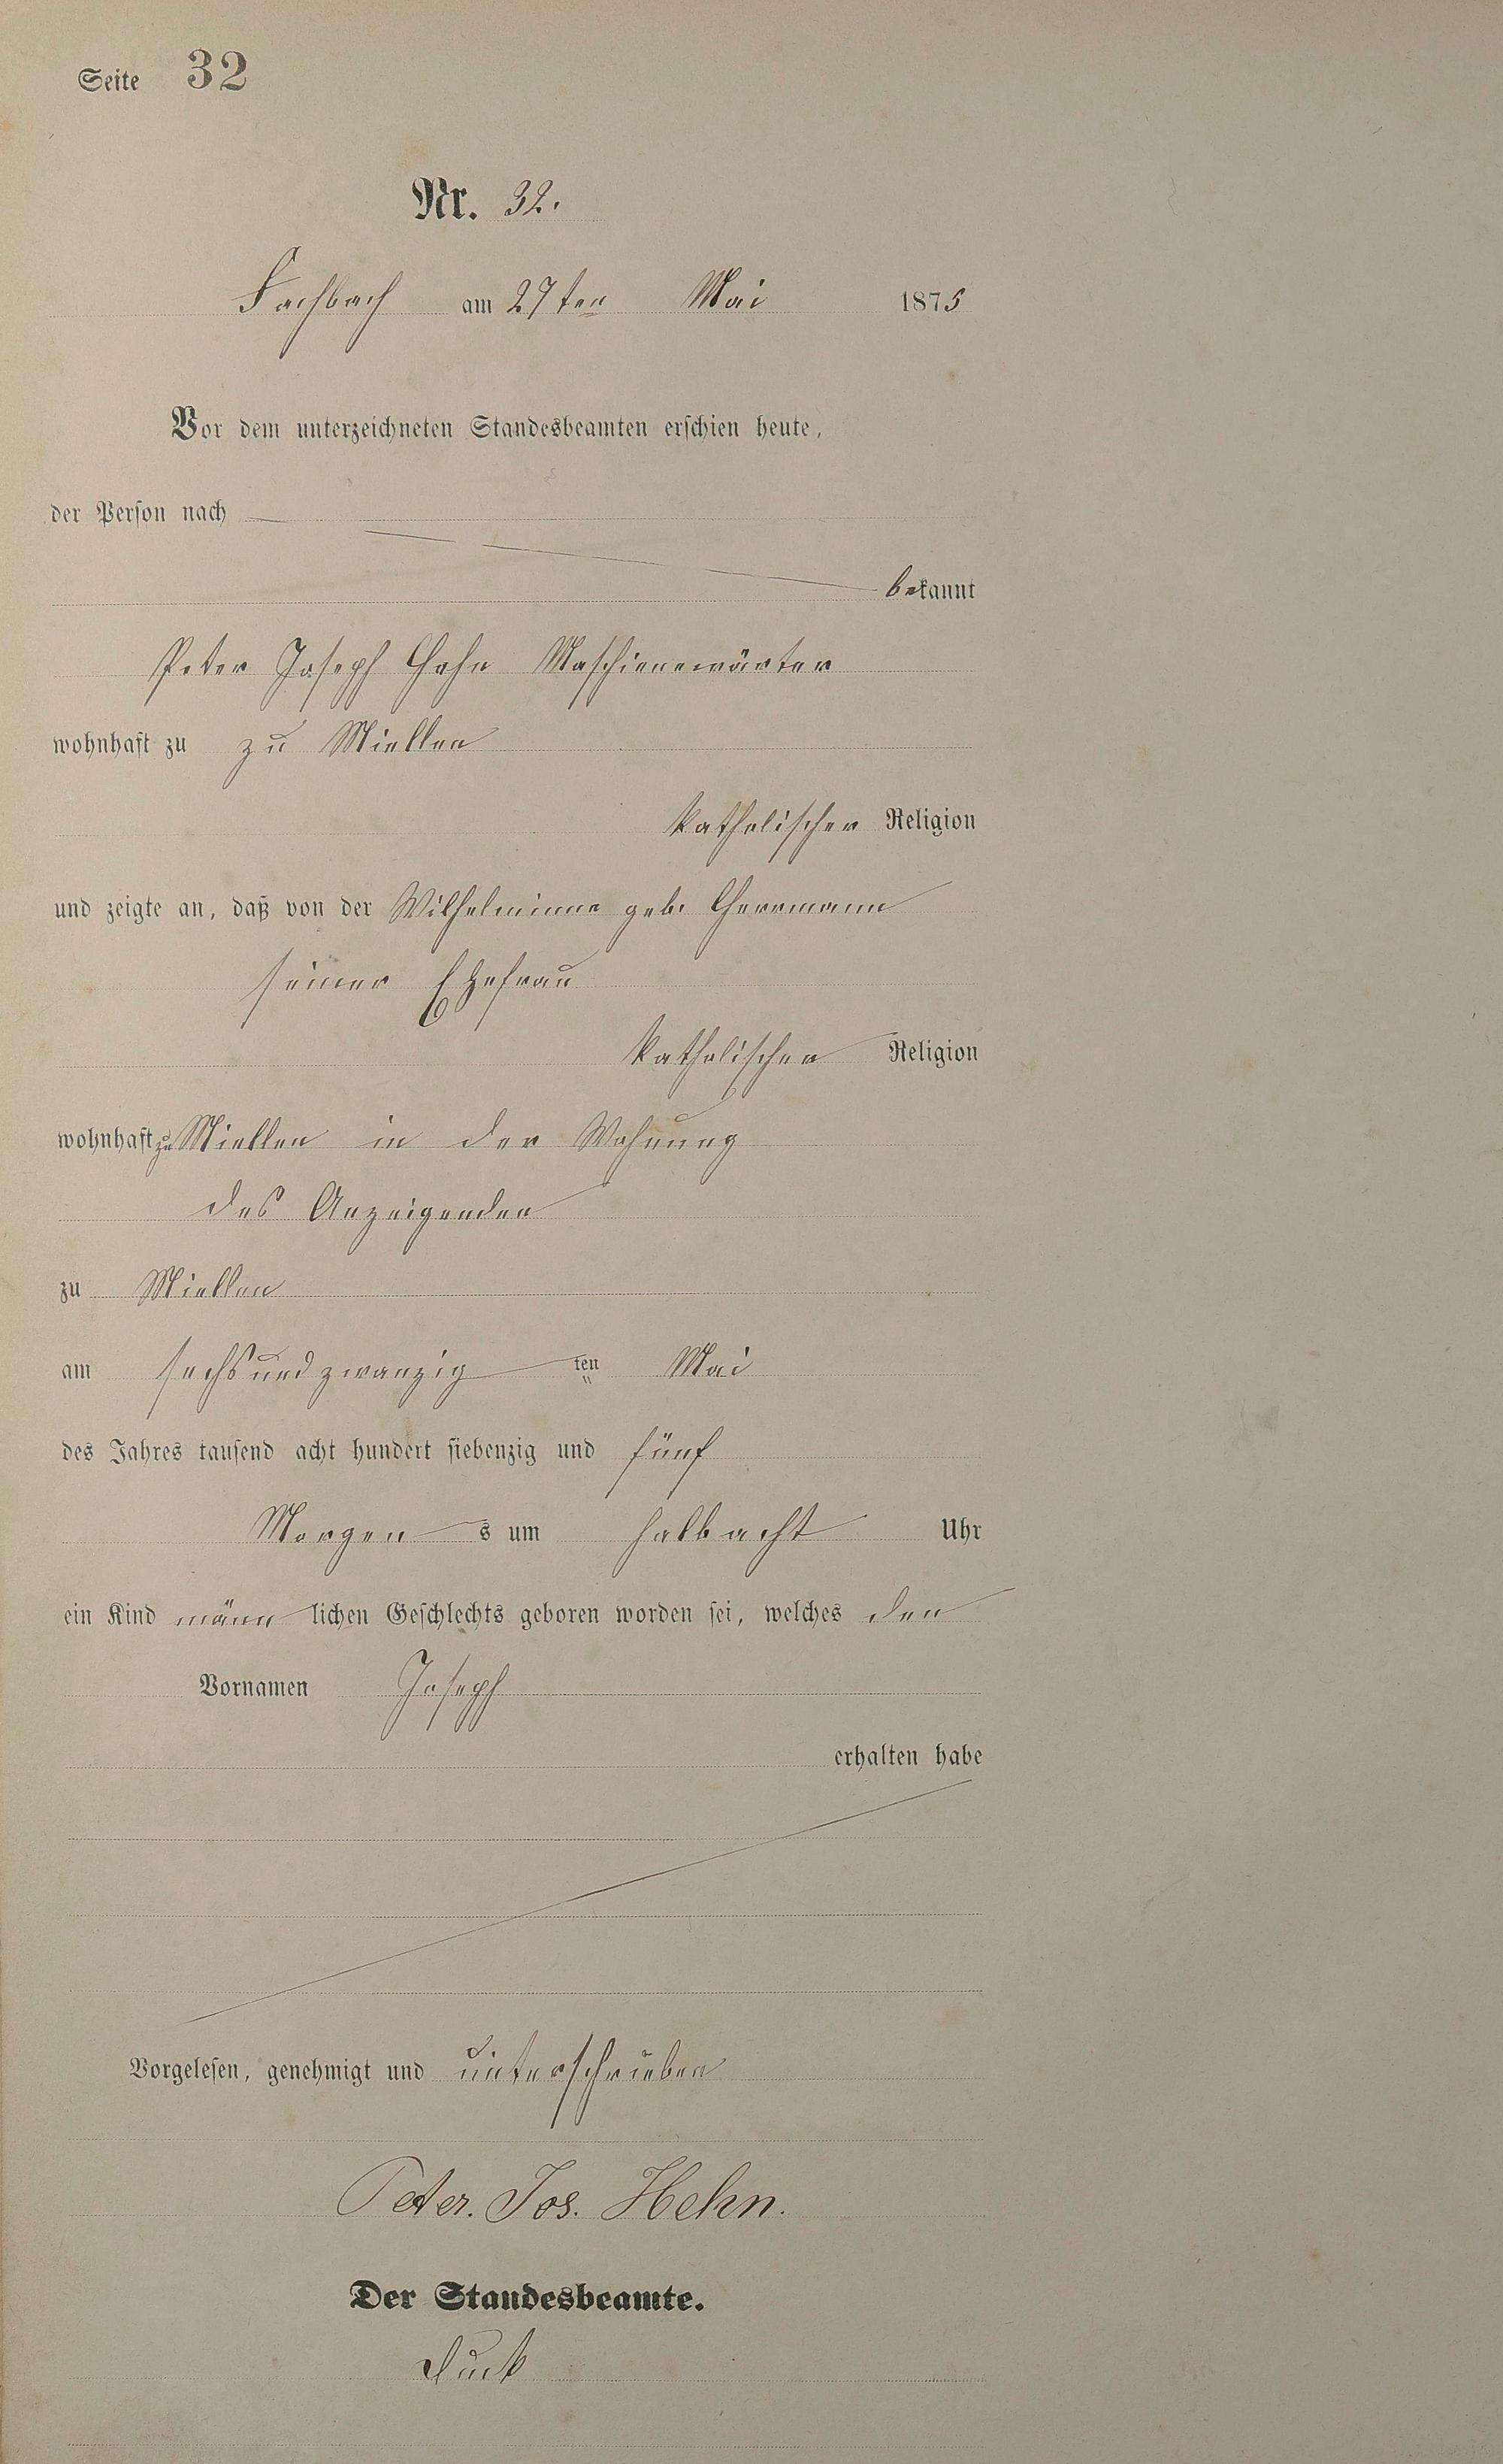 Seite 32
Nr. 32.
Fachbach am 27ten Mai 1875
Vor dem unterzeichneten Standesbeamten erschien heute,
der Person nach
bekannt
Peter Joseph Hehn Maschienewärter
wohnhaft zu zu Miellen
katholischer Religion
und zeigte an, daß von der Wilhelmine geb. Herrmann
seiner Ehefrau
katholischer Religion
wohnhaft zu Miellen in der Wohnung
des Anzeigenden
zu Miellen
am sechsundzwanzig ten Mai
des Jahres tausend acht hundert siebenzig und fünf
Morgen s um halb acht Uhr
ein Kind männ lichen Geschlechts geboren worden sei, welches den
Vornamen Joseph
erhalten habe
Vorgelesen, genehmigt und unterschrieben
Peter. Jos. Hehn.
Der Standesbeamte.